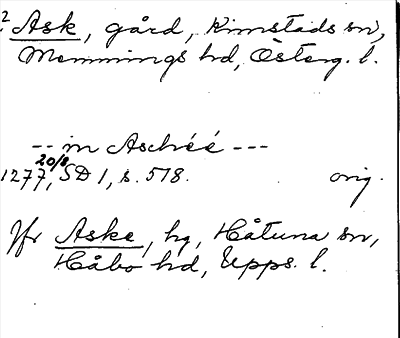 2. Ask, gård, Kimstads sn,
Memmings hd, Österg. l.
-- in Aschéé ---
20/8
1277, SD 1, s. 518. orig.
Jfr Aske, hg, Håtuna sn,
Håbo hd, Upps. l.